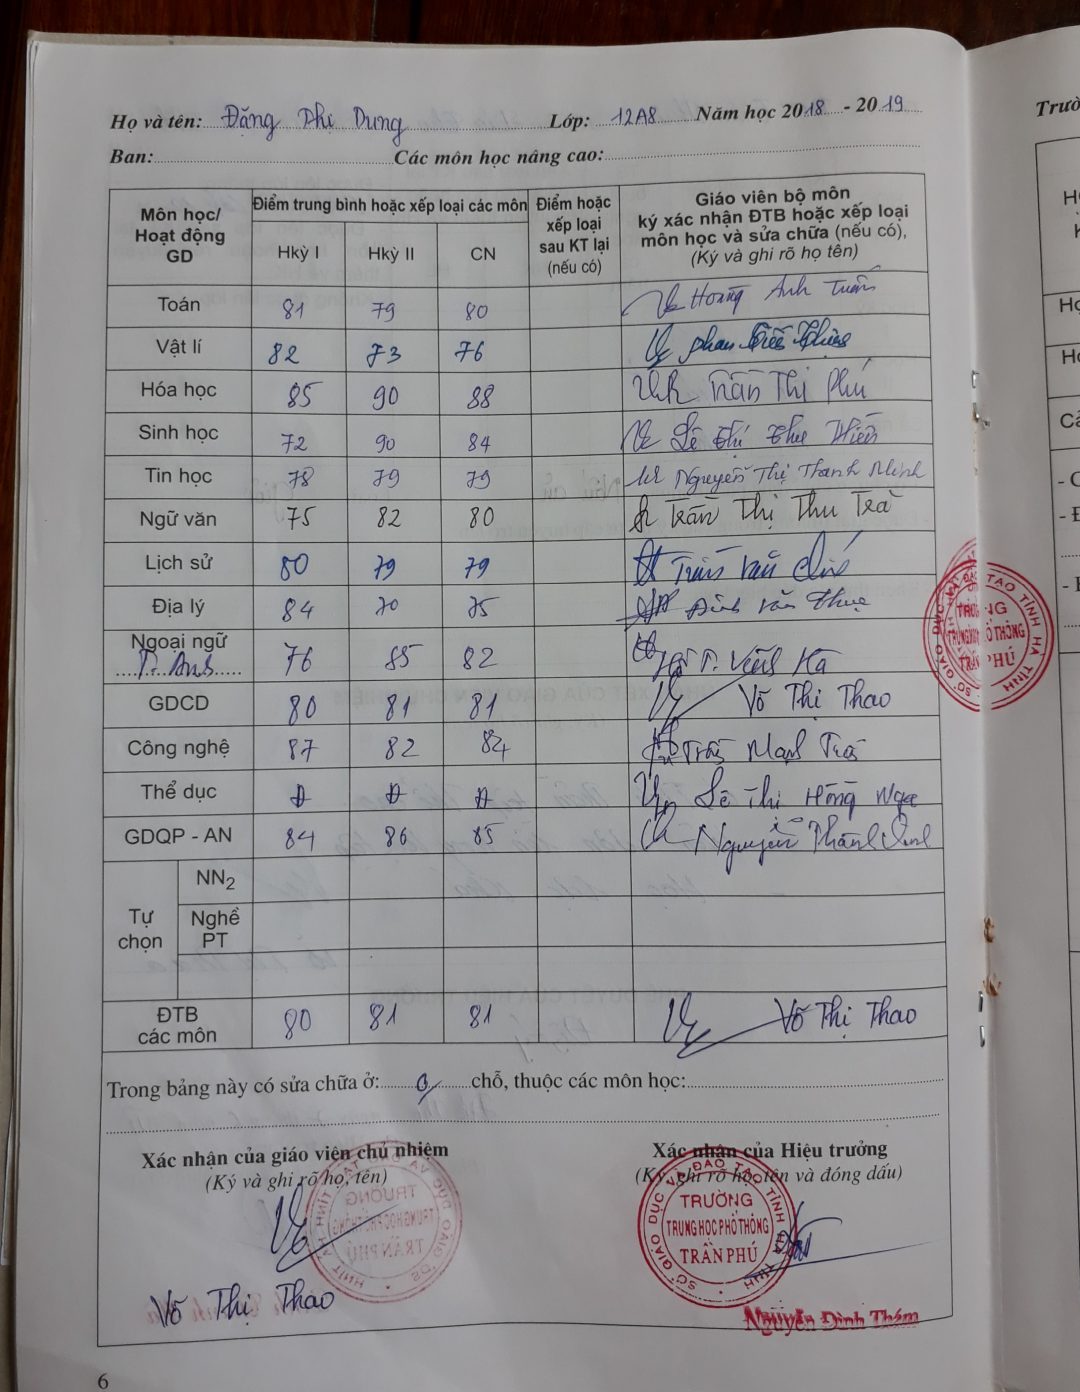 Họ và tên: Đặng Thị Dung Lớp: 12A8 Năm học 2018 - 2019
Ban: Các môn học nâng cao:
Môn học/ Hoạt động GD Điểm trung bình hoặc xếp loại các môn Điểm hoặc xếp loại sau KT lại (nếu có) Giáo viên bộ môn ký xác nhận ĐTB hoặc xếp loại môn học và sửa chữa (nếu có), (Ký và ghi rõ họ tên)
Hkỳ I Hkỳ II CN
Toán 81 79 80 Hoàng Anh Tuấn
Vật lí 82 73 76 Phan
Hóa học 85 90 88 Trần Thị Phú
Sinh học 72 90 84 Lê Thị Thu Hiền
Tin học 78 79 79 Nguyễn Thị Thanh Minh
Ngữ văn 75 82 80 Trần Thị Thu Trà
Lịch sử 80 79 79 Trần Văn
Địa lý 84 70 75 Đinh Văn
Ngoại ngữ T. Anh 76 85 82 Hà
GDCD 80 81 81 Võ Thị Thao
Công nghệ 87 82 84 Trần Mạnh
Thể dục Đ Đ Đ Lê Thị Hồng Nga
GDQP - AN 84 86 85 Nguyễn Thành
Tự chọn NN2
Nghề PT
ĐTB các môn 80 81 81 Võ Thị Thao
Trong bảng này có sửa chữa ở: 0 chỗ, thuộc các môn học:
Xác nhận của giáo viên chủ nhiệm Xác nhận của Hiệu trưởng
(Ký và ghi rõ họ, tên) (Ký, ghi rõ họ, tên và đóng dấu)
SỞ GIÁO DỤC VÀ ĐÀO TẠO TỈNH HÀ TĨNH
TRƯỜNG
TRUNG HỌC PHỔ THÔNG
TRẦN PHÚ
Võ Thị Thao Nguyễn Đình Thám
6
Trườ